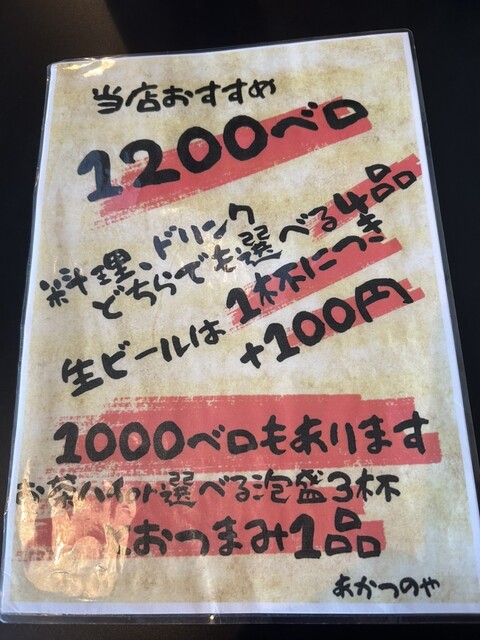 当店おすすめ
1200ベロ
料理、ドリンク
どちらでも選べる4品
生ビールは1杯につき
+100円
1000ベロもあります
お茶ハイor選べる泡盛3杯
におつまみ1品
あかつのや